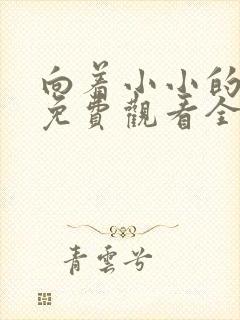 向着小小的
免費觀看全
青雲兮